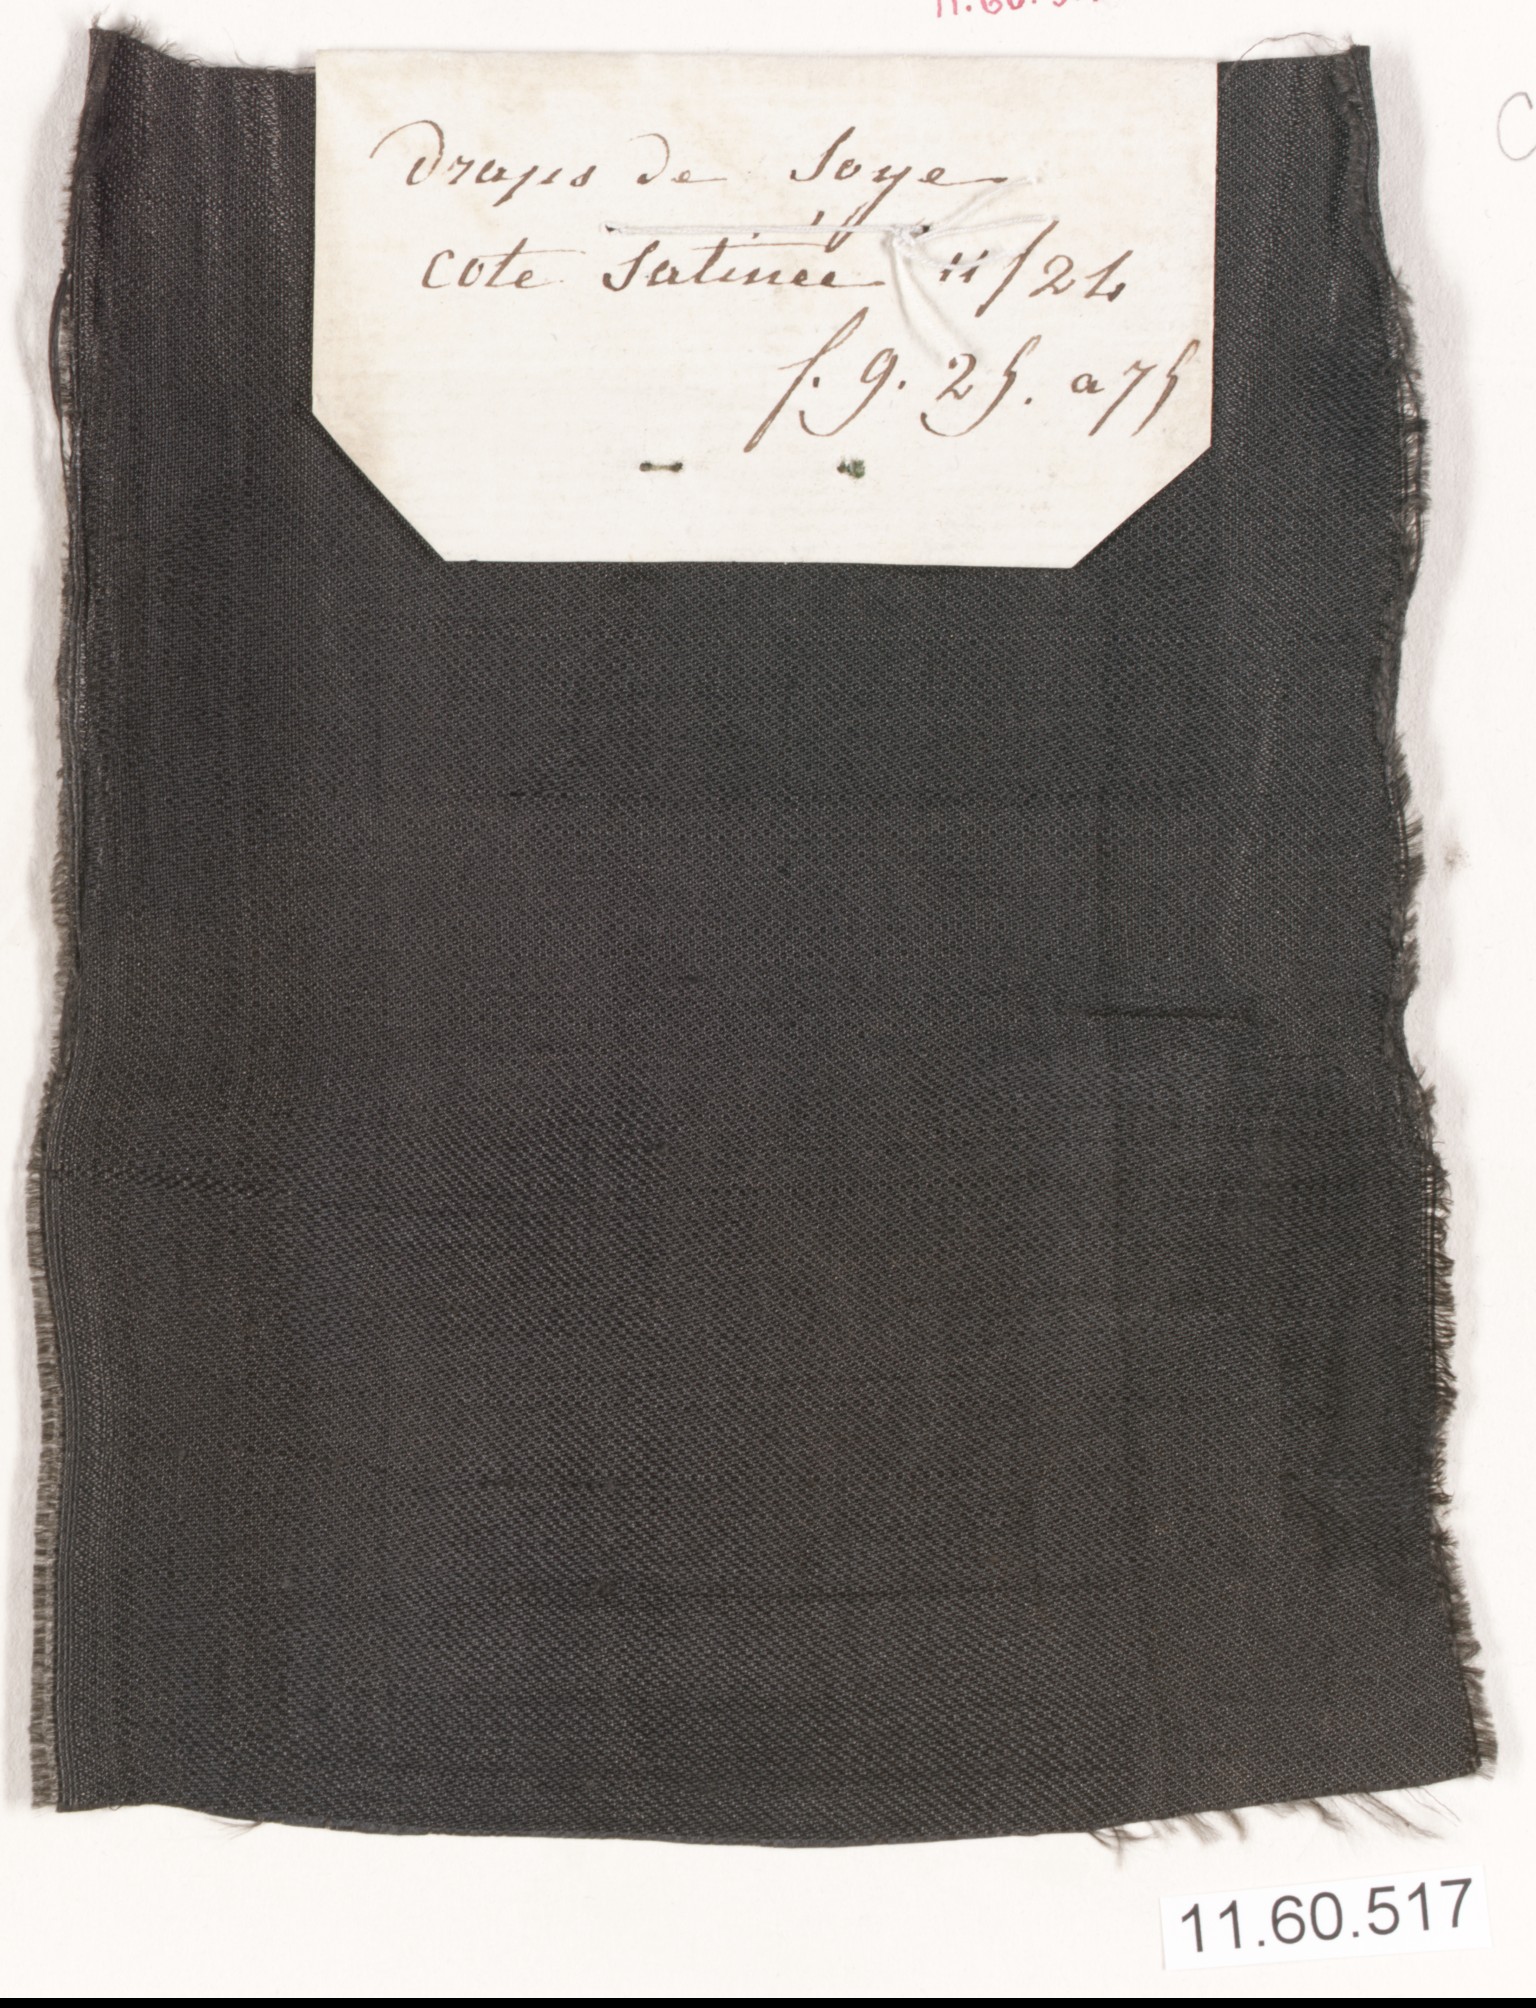 11.60.517
Draps de Soye
cote Satinée 11/24
f. 9. 25. a 75
11.60.517